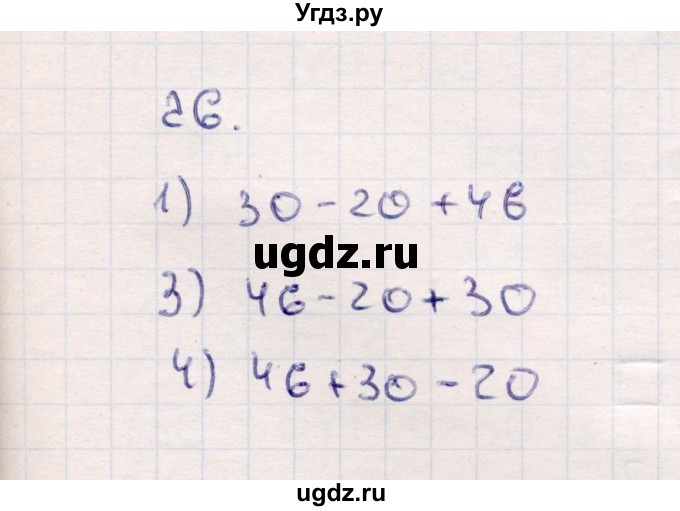 Угдз.ру
26.
1) 30 - 20 + 46
ugdz.ru
3) 46 - 20 + 30
4) 46 + 30 - 20
ugdz.ru